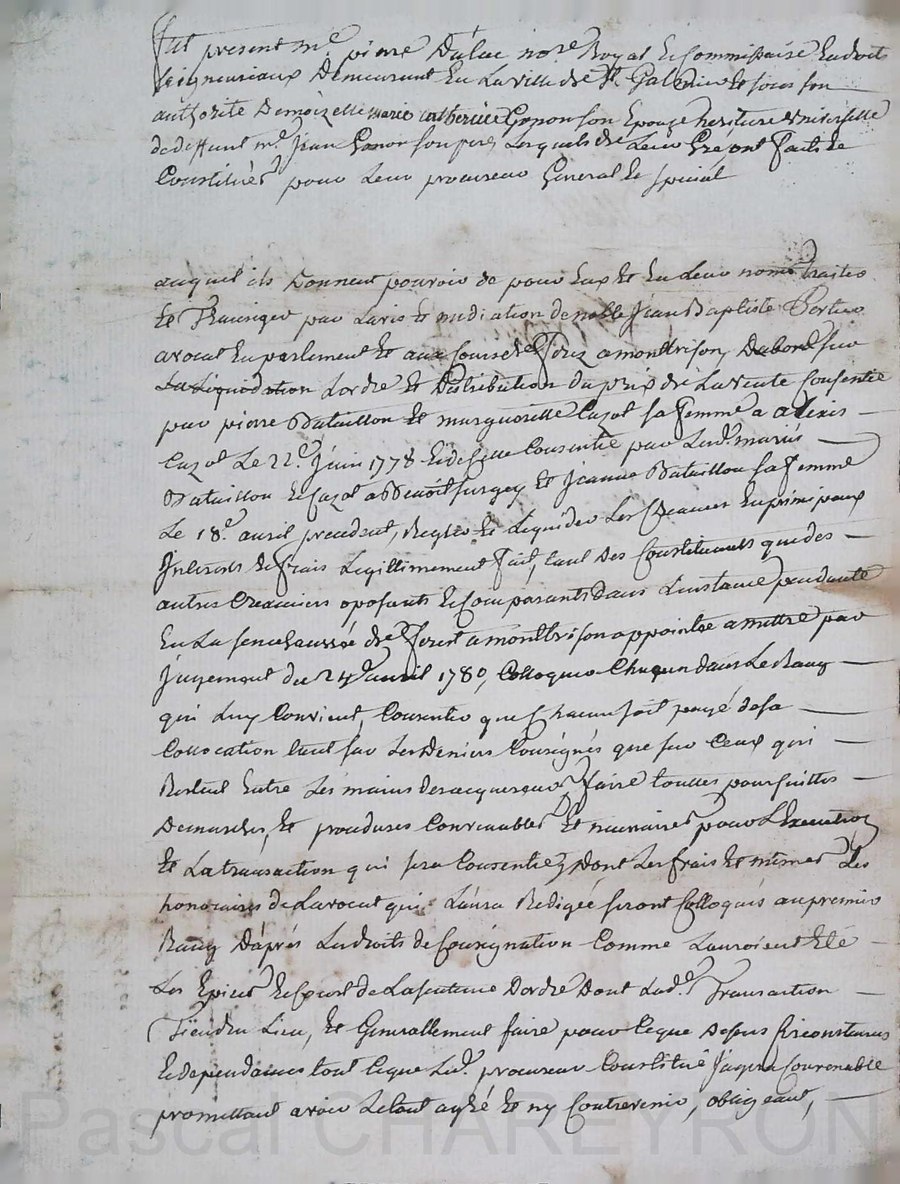 fut present me. pierre Dulac nore. Royal & Commissaire En droits
seigneuriaux Demeurant En La ville de St. Galmier & sous son
authorité Demoizelle marie catherine Gonon son Epouze heritiere universelle
de deffunt me. Jean Gonon son pere, Lesquels de Leur Gré ont fait &
Constitué pour Leur procureur General & special
auquel ils Donnent pouvoir de pour Eux Et En Leur noms traiter
Et Transiger par L'avis & mediation de noble Jean Baptiste Portier
avocat En parlement Et aux Cours de Forez a montbrison, Dabord sur
La Liquidation L'ordre Et Distribution du prix de La vente Consentie
par pierre Bataillon Et margueritte Cazot sa Femme a alexis
Cazot Le 22e. Juin 1778 & de Celle Consentie par Lesd. mariés
Bataillon & Cazot a Benoit Surgey Et Jeanne Bataillon sa Femme
Le 18e. avril precedent, Regler Et Liquider Les Creances En principaux
Interets & frais Legittimement fait, tant Des Constituants que des
autres Creanciers oposants & Comparants dans L'instance pendante
En La senechaussée de Forest a montbrison appointée a mettre par
Jugement du 24e. avril 1780, Colloquer Chaqun dans Le Rang
qui Luy Convient, Consentir que Chacun soit payé de sa
Collocation tant sur Les Deniers Consignés que sur Ceux qui
Restent Entre Les mains des acquereurs, faire touttes poursuittes
Demarches, Et procedures Convenables Et necessaires pour L'Execution
Et La transaction qui sera Consentie, Dont Les frais Et mêmes Les
honoraires de L'avocat qui L'aura Redigée seront Colloqués au premier
Rang D'aprés Les droits de Consignation Comme L'auroient Eté
Les Epices & Cout de La sentence D'ordre Dont Lade. Transaction
Tiendra Lieu, Et Generallement faire pour Ce que Dessus Circonstances
& dependances tout Ce que Led. procureur Constitué Jugera Convenable
promettant avoir Le tout agréé Et ny Contrevenir, obligeant,
Pascal CHAREYRON